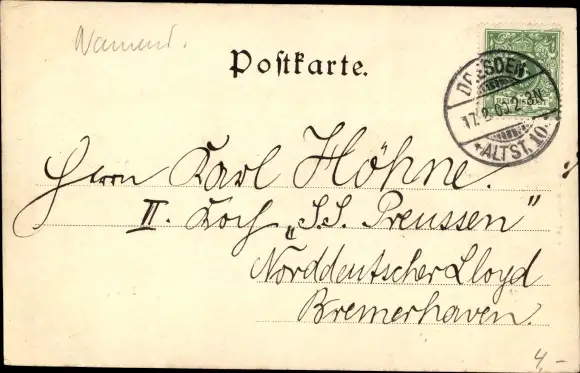 Postkarte.
DRESDEN
*ALTST. 10
REICHSPOST
Herrn Karl Höhne.
II. Koch „S.S. Preussen"
Norddeutscher Lloyd
Bremerhaven.
4,-